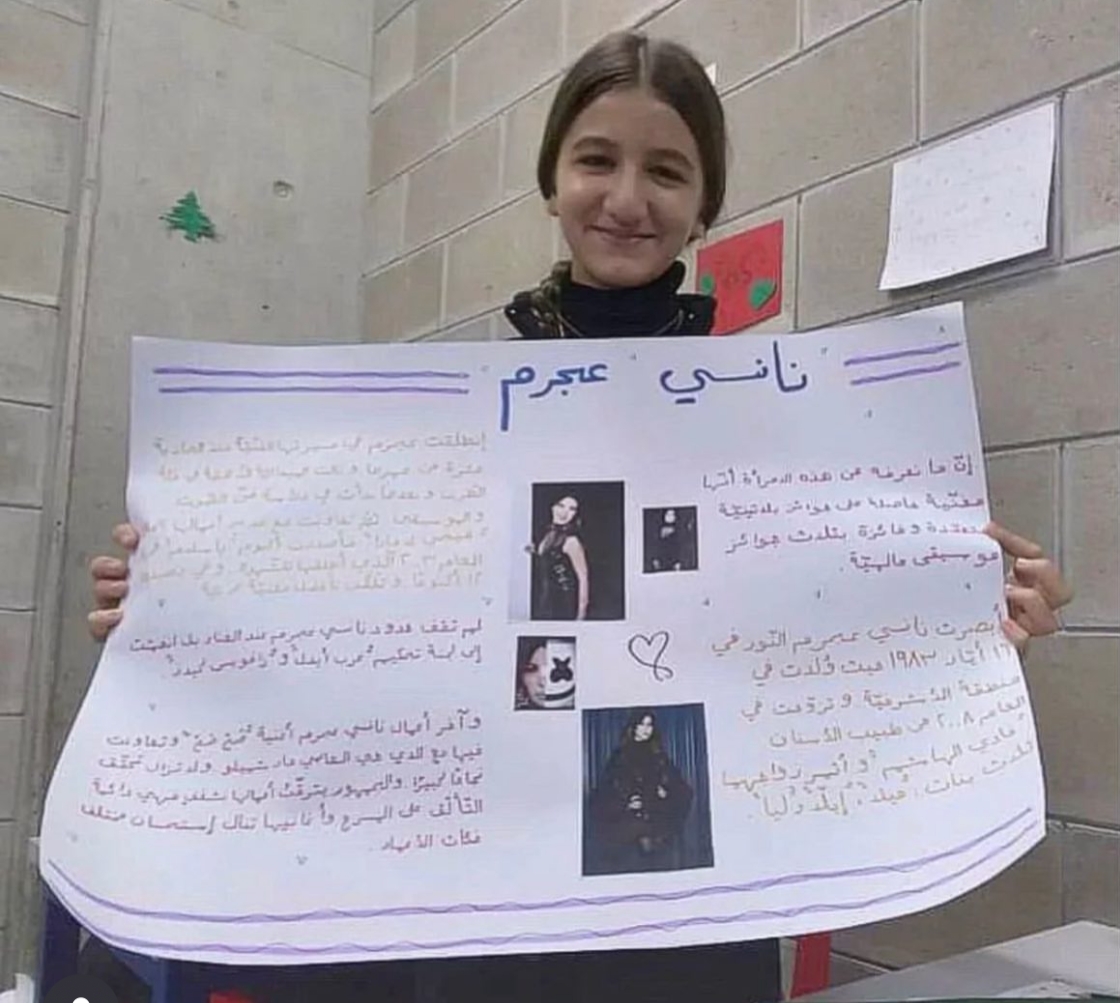 نانسي عجرم
إنّ ما نعرفه عن هذه المرأة أنّها
مغنّية حاصلة على جوائز بلاتينيّة
متعدّدة وفائزة بثلاث جوائز
موسيقى عالميّة.
أبصرت نانسي عجرم النّور في
١٦ أيّار ١٩٨٣ حيث وُلدت في
منطقة الأشرفيّة وتزوّجت في
العام ٢٠٠٨ من طبيب الأسنان
"فادي الهاشم" و أثمر زواجهما
ثلاث بنات: "ميلا"، "إيلّا" و"ليا".
إنطلقت عجرم في مسيرتها الفنّية منذ الحادية
عشرة من عمرها و
و بعدها بدأت في
والموسيقى. ثمّ تعاونت مع
فأصدرت ألبوم "يا سلام" في
العام ٢٠٠٣ الذي
لم تقف حدود نانسي عجرم عند الغناء بل انضمّت
إلى لجنة تحكيم "عرب أيدل" و"ذا فويس كيدز".
وآخر أعمال نانسي عجرم أغنية "صحّ صحّ" وتعاونت
فيها مع الدي جي العالمي مارشميلو ولا تزال تحقّق
نجاحًا كبيرًا. والجمهور يترقّب أعمالها بشغف فهي دائمة
التألّق على المسرح وأغانيها تنال إستحسان مختلف
فئات الأعمار.